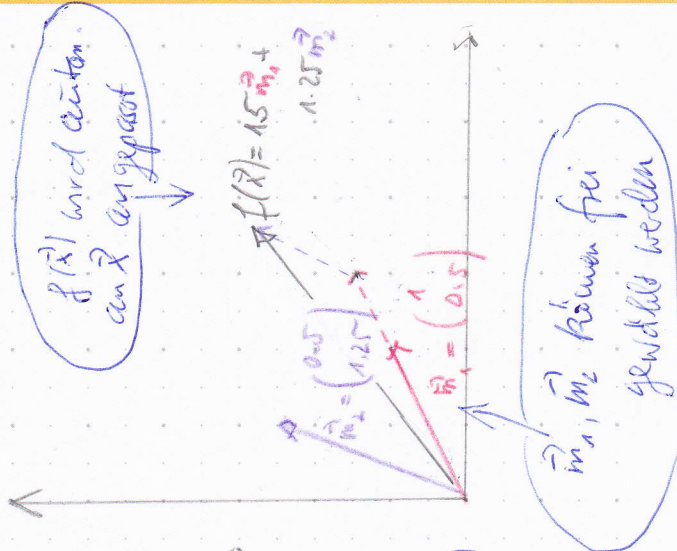 f(x⃗) wird autom.
an x⃗ angepasst
f(x⃗) = 1.5 m⃗₁ +
1.25 m⃗₂
m⃗₂ = (0.5
1.25)
m⃗₁ = (1
0.5)
m⃗₁, m⃗₂ können frei
gewählt werden